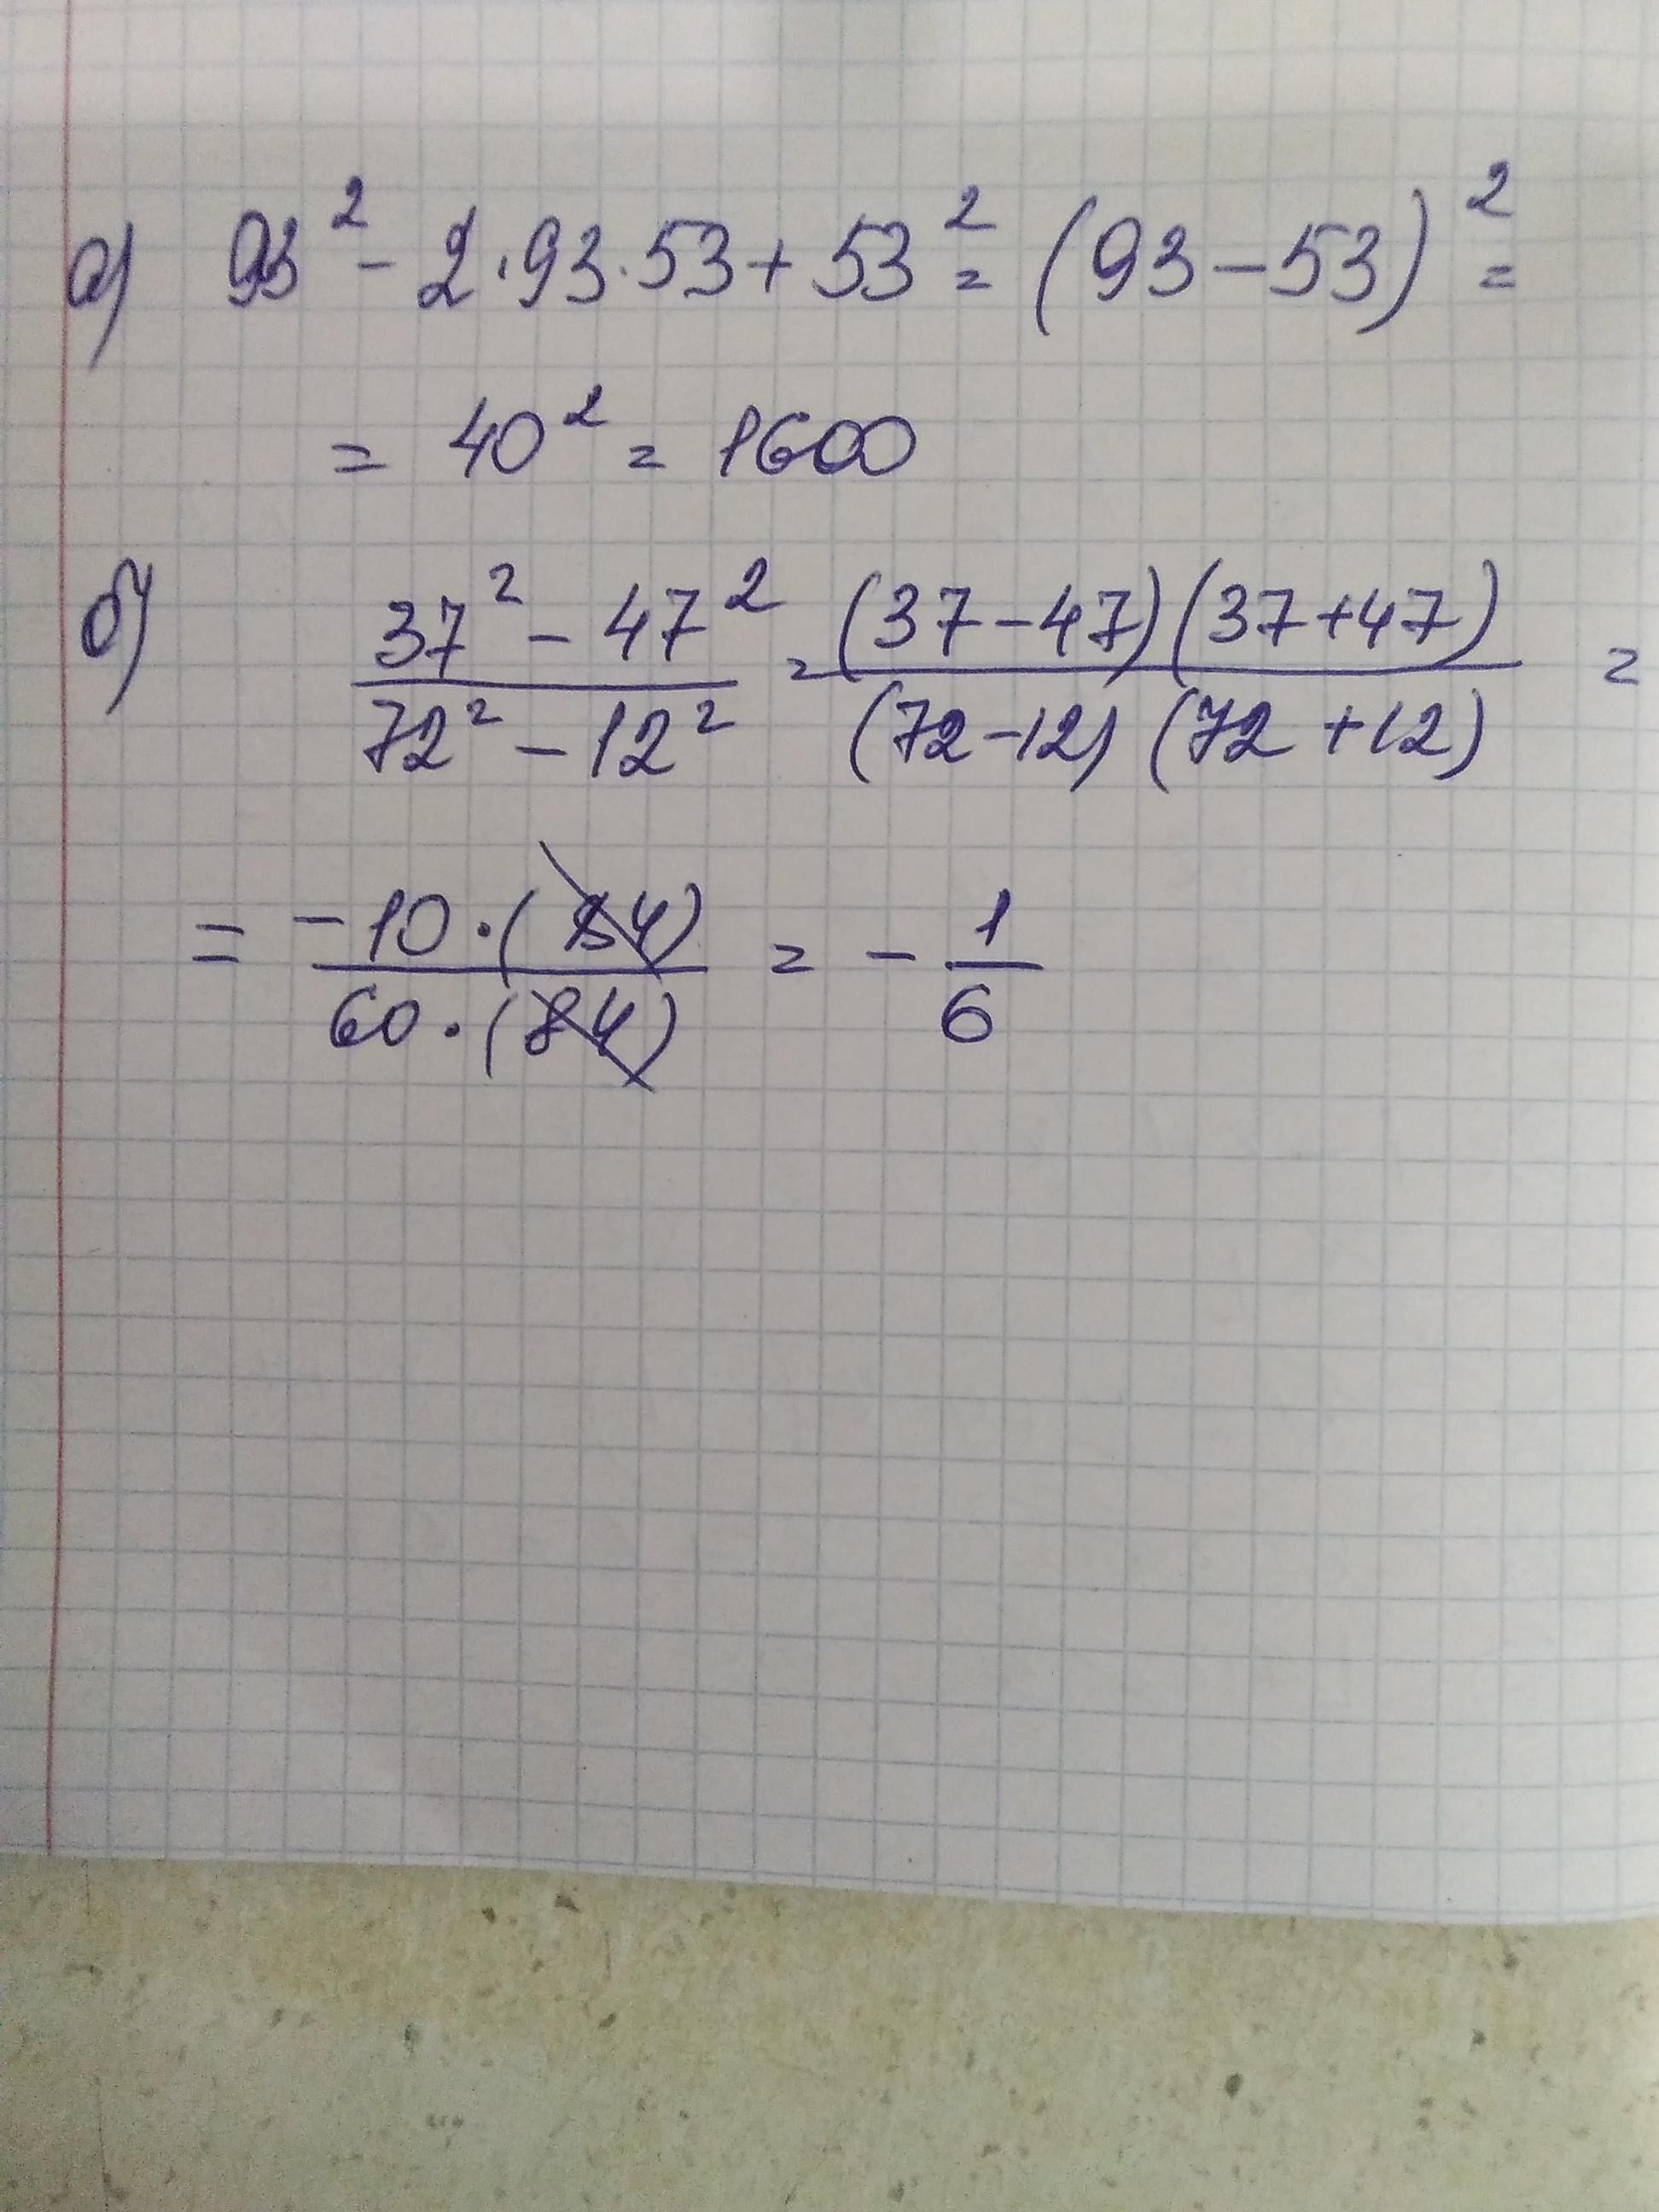 а) 93² - 2·93·53 + 53² = (93 - 53)² =
= 40² = 1600
б) (37² - 47²)/(72² - 12²) = ((37 - 47)(37 + 47))/((72 - 12)(72 + 12)) =
= (-10·(84))/(60·(84)) = -1/6